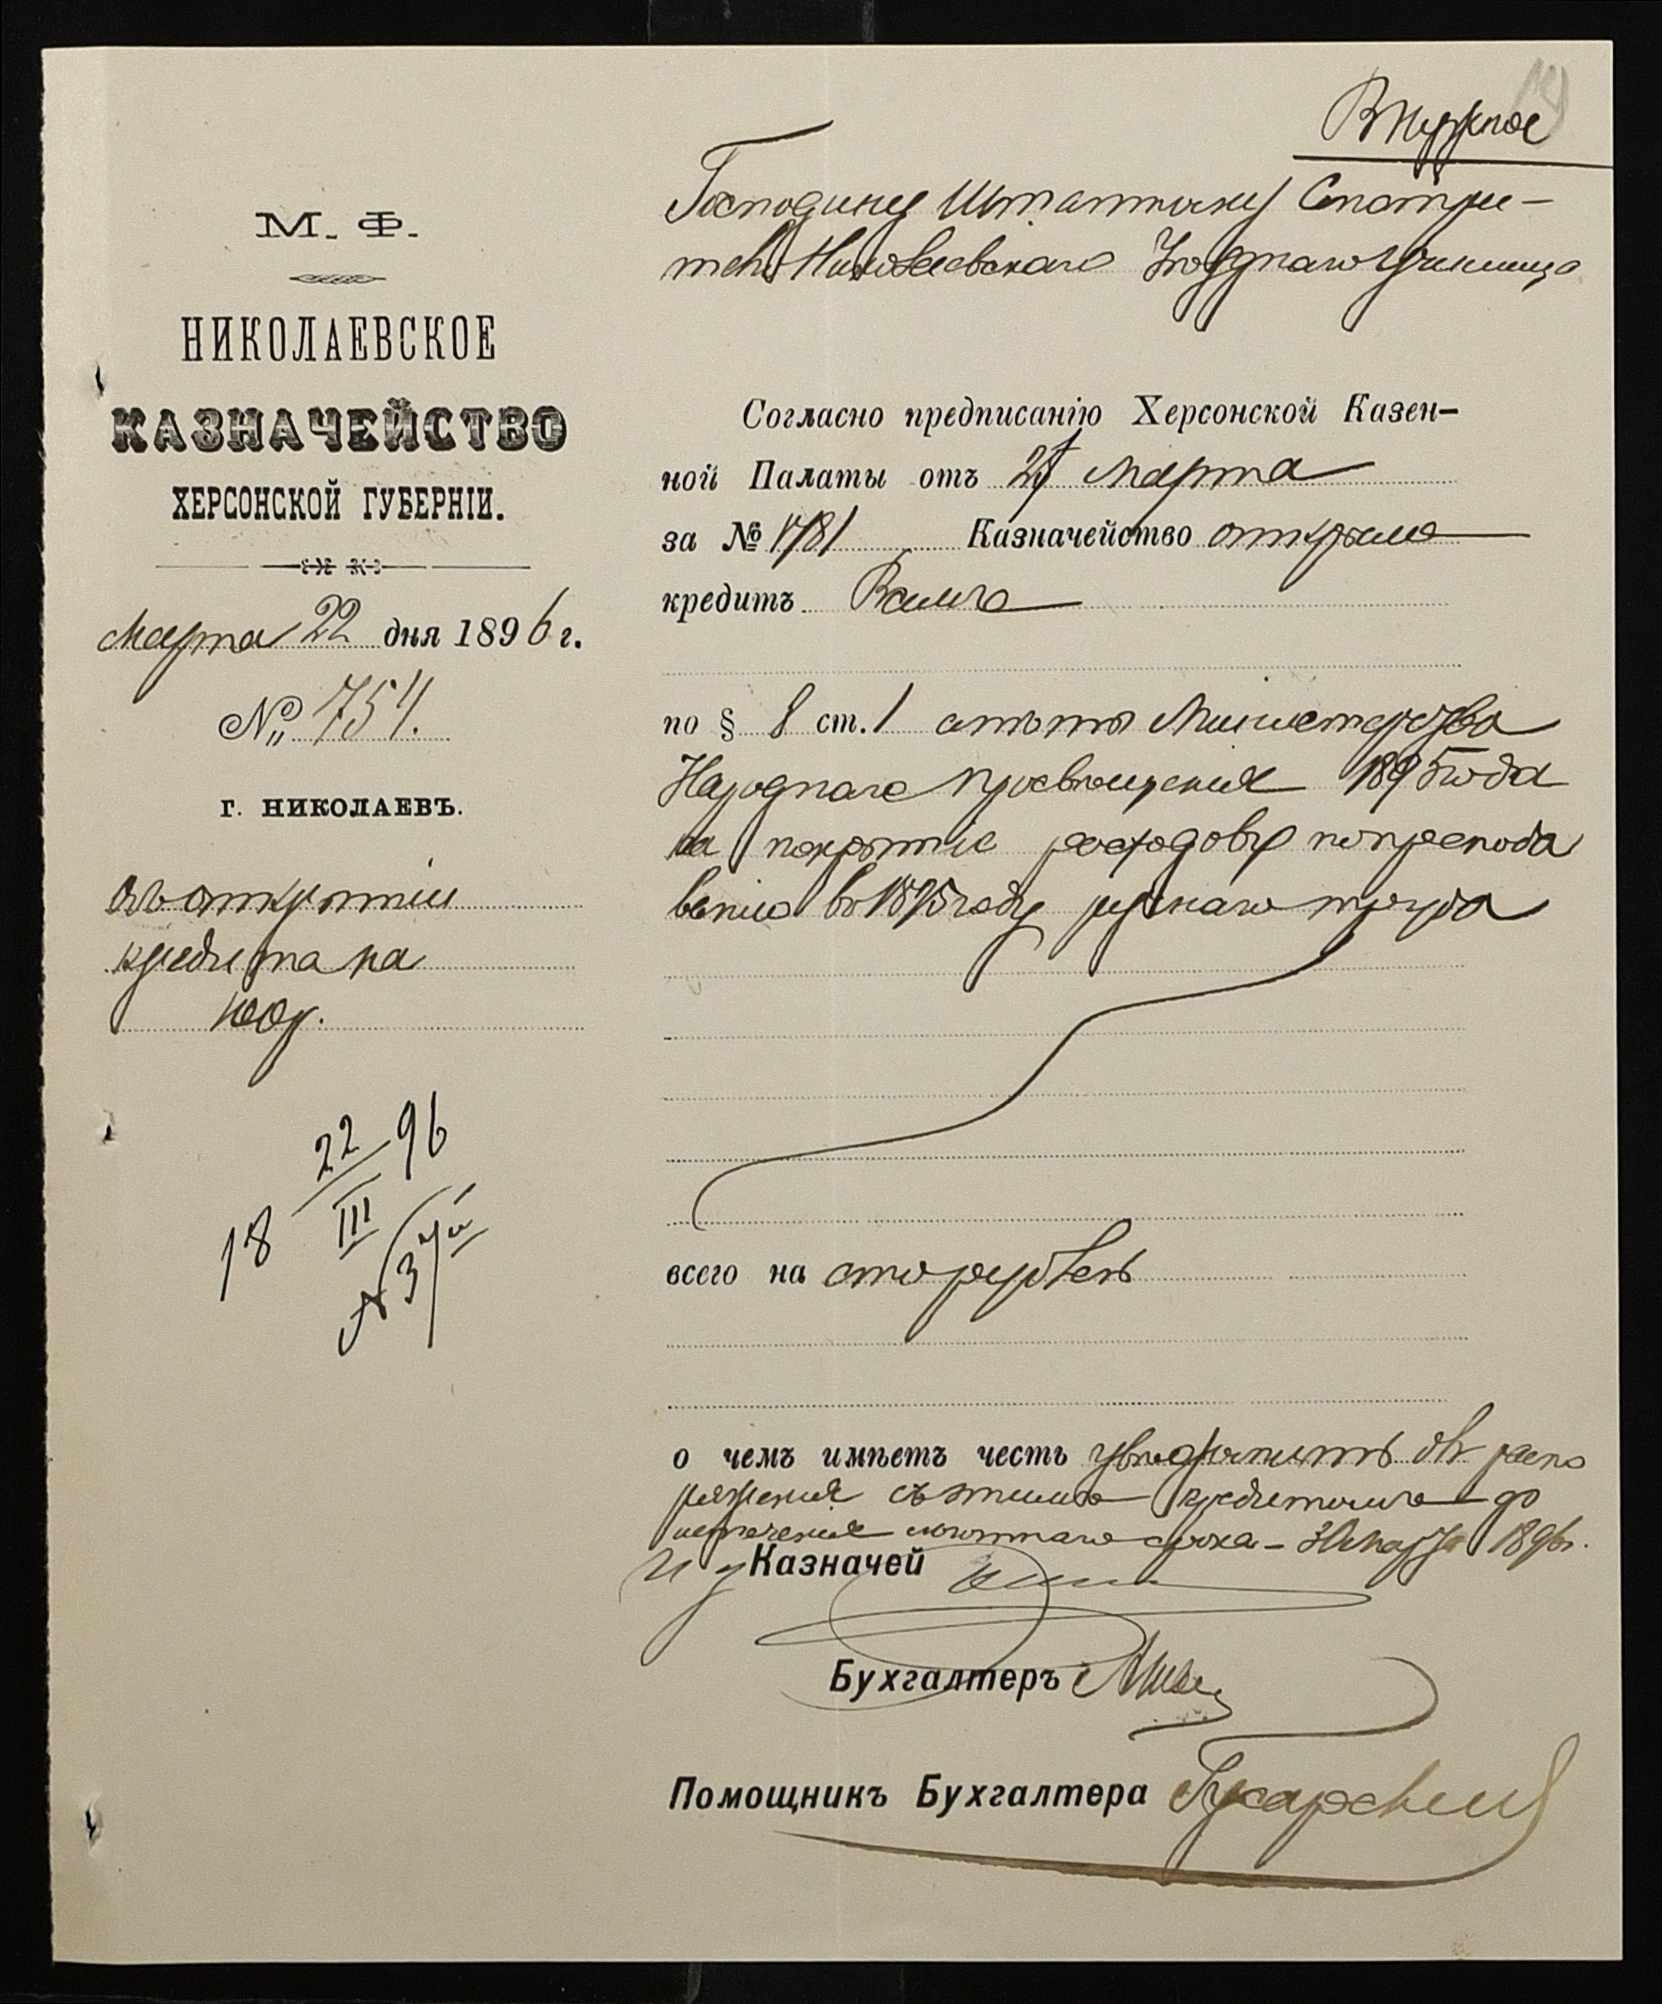 В нужное
Господину Штатному Смотри-
телю Николаевскаго Уѣзднаго Училища
М. Ф.
НИКОЛАЕВСКОЕ
КАЗНАЧЕЙСТВО
ХЕРСОНСКОЙ ГУБЕРНІИ.
Марта 22 дня 1896 г.
№ 754.
Г. НИКОЛАЕВЪ.
Объ открытіи
кредита на
100 р.
22 96
18 III
№ 37
Согласно предписанію Херсонской Казен-
ной Палаты отъ 21 марта
за № 1781 Казначейство открыло
кредитъ Вамъ
по § 8 ст. 1 смѣты Министерства
Народнаго Просвѣщенія 1895 года
на покрытіе расходовъ по препода
ванію въ 1895 году ручнаго труда
всего на сто рублей
о чемъ имѣетъ честь увѣдомить для распо
ряженія съ этимъ кредитомъ до
истеченія льготнаго срока - 31 марта 1896 г.
И д Казначей
Бухгалтеръ
Помощникъ Бухгалтера